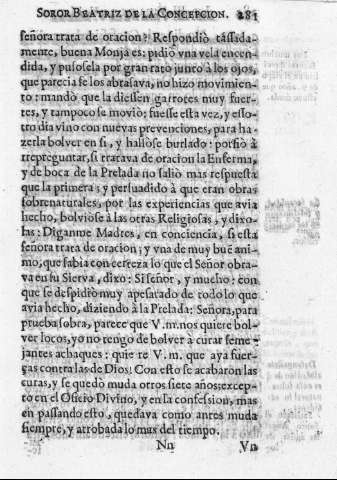 SOROR BEATRIZ DE LA CONCEPCION. 281
señora trata de oracion? Respondiò tassada-
mente, buena Monja es: pidiò vna vela encen-
dida, y pusosela por gran rato junto à los ojos,
que parecia se los abrasava, no hizo movimien-
to: mandò que la diessen garrotes muy fuer-
tes, y tampoco se moviò; fuesse esta vez, y esso-
tro dia vino con nuevas prevenciones, para ha-
zerla bolver en si, y hallose burlado: porfiò à
repreguntar, si tratava de oracion la Enferma,
y de boca de la Prelada no saliò mas respuesta
que la primera; y persuadido à que eran obras
sobrenaturales, por las experiencias que avia
hecho, bolviòse à las otras Religiosas, y dixo-
las: Diganme Madres, en conciencia, si esta
señora trata de oracion; y vna de muy buē ani-
mo, que sabia con certeza lo que el Señor obra-
va en su Sierva, dixo: Si señor, y mucho: con
que se despidiò muy apesarado de todo lo que
avia hecho, diziendo à la Prelada: Señora, para
prueba sobra, parece que V.m. nos quiere bol-
ver locos, yo no tengo de bolver à curar seme-
jantes achaques: quiere V. m. que aya fuer-
ças contra las de Dios? Con esto se acabaron las
curas, y se quedò muda otros siete años; excep-
to en el Oficio Divino, y en la confession, mas
en passando esto, quedava como antes muda
siempre, y arrobada lo mas del tiempo.
Nn Vn